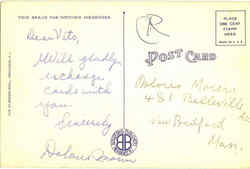 THIS SPACE FOR WRITING MESSAGES
Dear Vito,
Will gladly
exchange
cards with
you.
Sincerely
Dolores
POST CARD
PLACE
ONE CENT
STAMP
HERE
R
Dolores
481 Belleville
New Bedford
Mass.